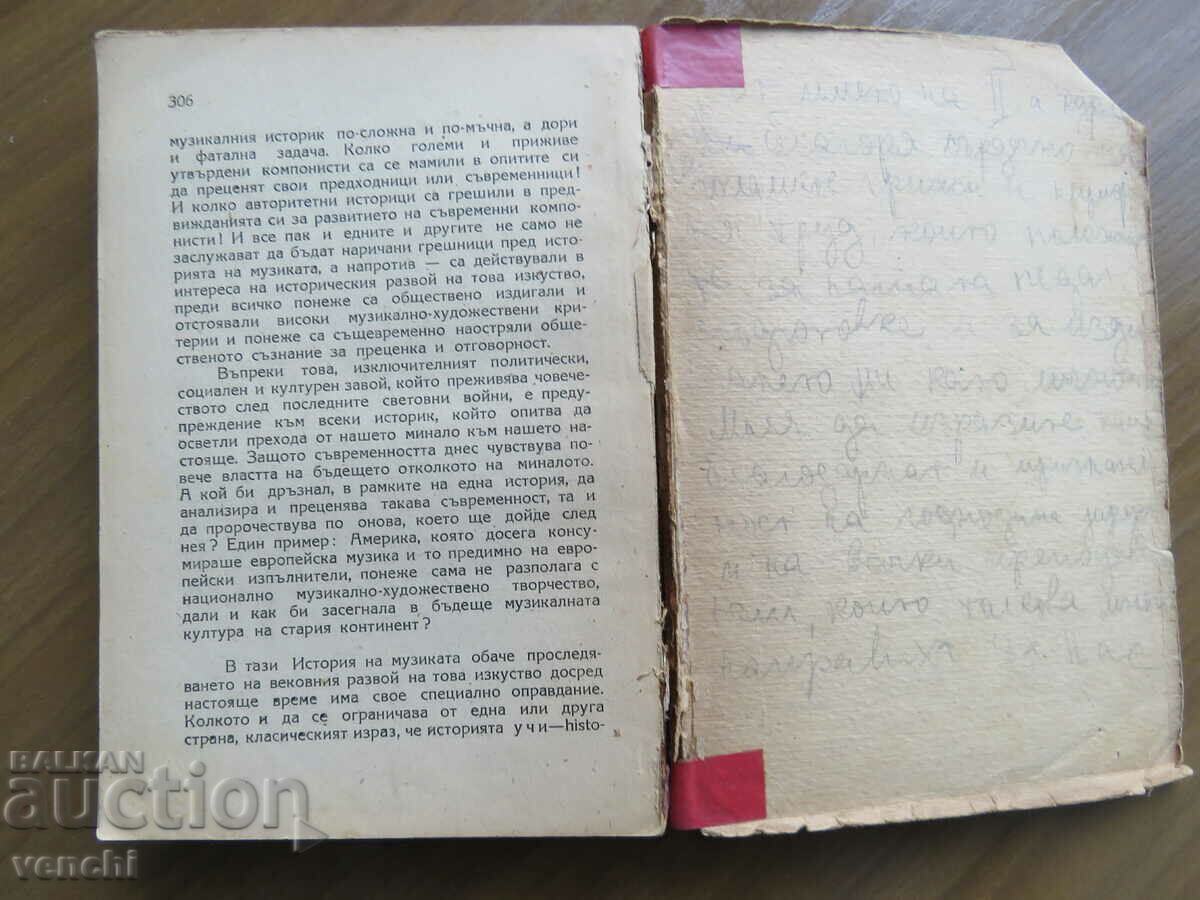 306
музикалния историк по-сложна и по-мъчна, а дори
и фатална задача. Колко големи и приживе
утвърдени компонисти са се мамили в опитите си
да преценят свои предходници или съвременници!
И колко авторитетни историци са грешили в пред-
вижданията си за развитието на съвременни компо-
нисти! И все пак и едните и другите не само не
заслужават да бъдат наричани грешници пред исто-
рията на музиката, а напротив — са действували в
интереса на историческия развой на това изкуство,
преди всичко понеже са обществено издигали и
отстоявали високи музикално-художествени кри-
терии и понеже са същевременно наостряли обще-
ственото съзнание за преценка и отговорност.
Въпреки това, изключителният политически,
социален и културен завой, който преживява човече-
ството след последните световни войни, е преду-
преждение към всеки историк, който опитва да
осветли прехода от нашето минало към нашето на-
стояще. Защото съвременността днес чувствува по-
вече властта на бъдещето отколкото на миналото.
А кой би дръзнал, в рамките на една история, да
анализира и преценява такава съвременност, та и
да пророчествува по онова, което ще дойде след
нея? Един пример: Америка, която досега консу-
мираше европейска музика и то предимно на евро-
пейски изпълнители, понеже сама не разполага с
национално музикално-художествено творчество,
дали и как би засегнала в бъдеще музикалната
култура на стария континент?
В тази История на музиката обаче проследя-
ването на вековния развой на това изкуство досред
настояще време има свое специално оправдание.
Колкото и да се ограничава от една или друга
страна, класическият израз, че историята учи—histo-
името на II а
благодаря сърдечно
грижи и
труд, които
за нашата
за
ни като
Моля да изразите
и
ност на
и на всички
които толкова
направиха за нас
BALKAN
auction
venchi